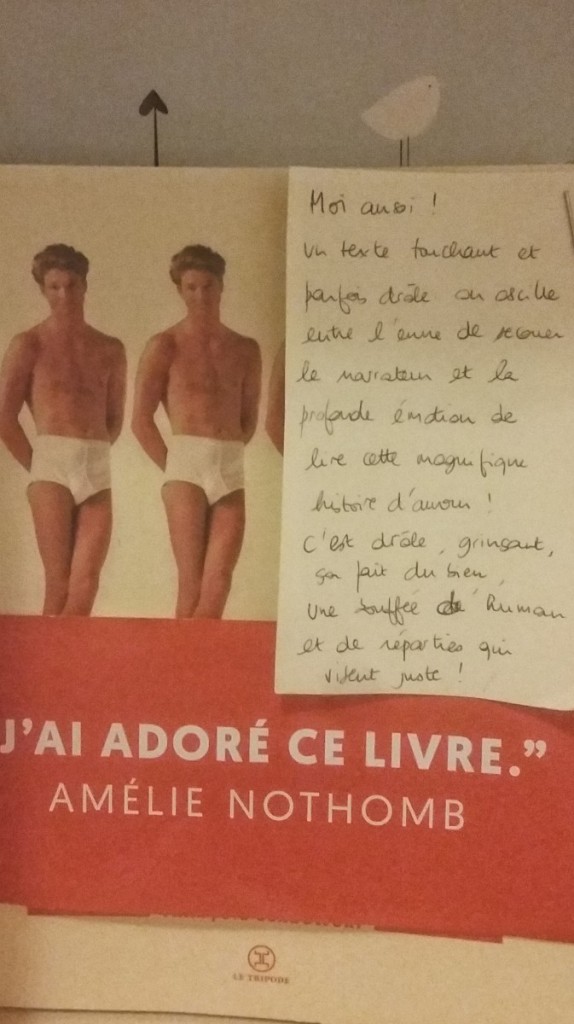 Moi aussi !
un texte touchant et
parfois drôle on oscille
entre l'envie de secouer
le narrateur et la
profonde émotion de
lire cette magnifique
histoire d'amour !
C'est drôle, grinçant,
ça fait du bien,
une bouffée d'human
et de réparties qui
visent juste !
J'AI ADORÉ CE LIVRE.”
AMÉLIE NOTHOMB
LE TRIPODE